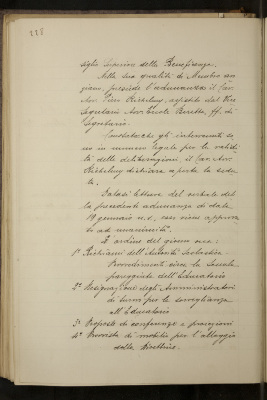 228
siglio Superiore della Beneficenza.
Nella sua qualità di Membro an
ziano, presiede l'adunanza il Cav.
Avv. Piero Richelmy, assistito dal Vice
Segretario Avv. Ercole Beretta, ff. di
Segretario.
Constatato che gli intervenuti so
no in numero legale per la validi
tà delle deliberazioni il Cav. Avv.
Richelmy dichiara aperta la sedu
ta.
Datasi lettura del verbale del
la precedente adunanza di data
19 gennaio u.s., esso viene approva
to ad unanimità.
L'ordine del giorno reca:
1° Richiami dell'Autorità Scolastica.
Provvedimenti circa la Scuola
pareggiata dell'Educatorio
2° Designazione degli Amministratori
di turno per la sorveglianza
all'Educatorio
3° Proposte di conferenze e proiezioni
4° Provvista di mobilio per l'alloggio
della Direttrice.